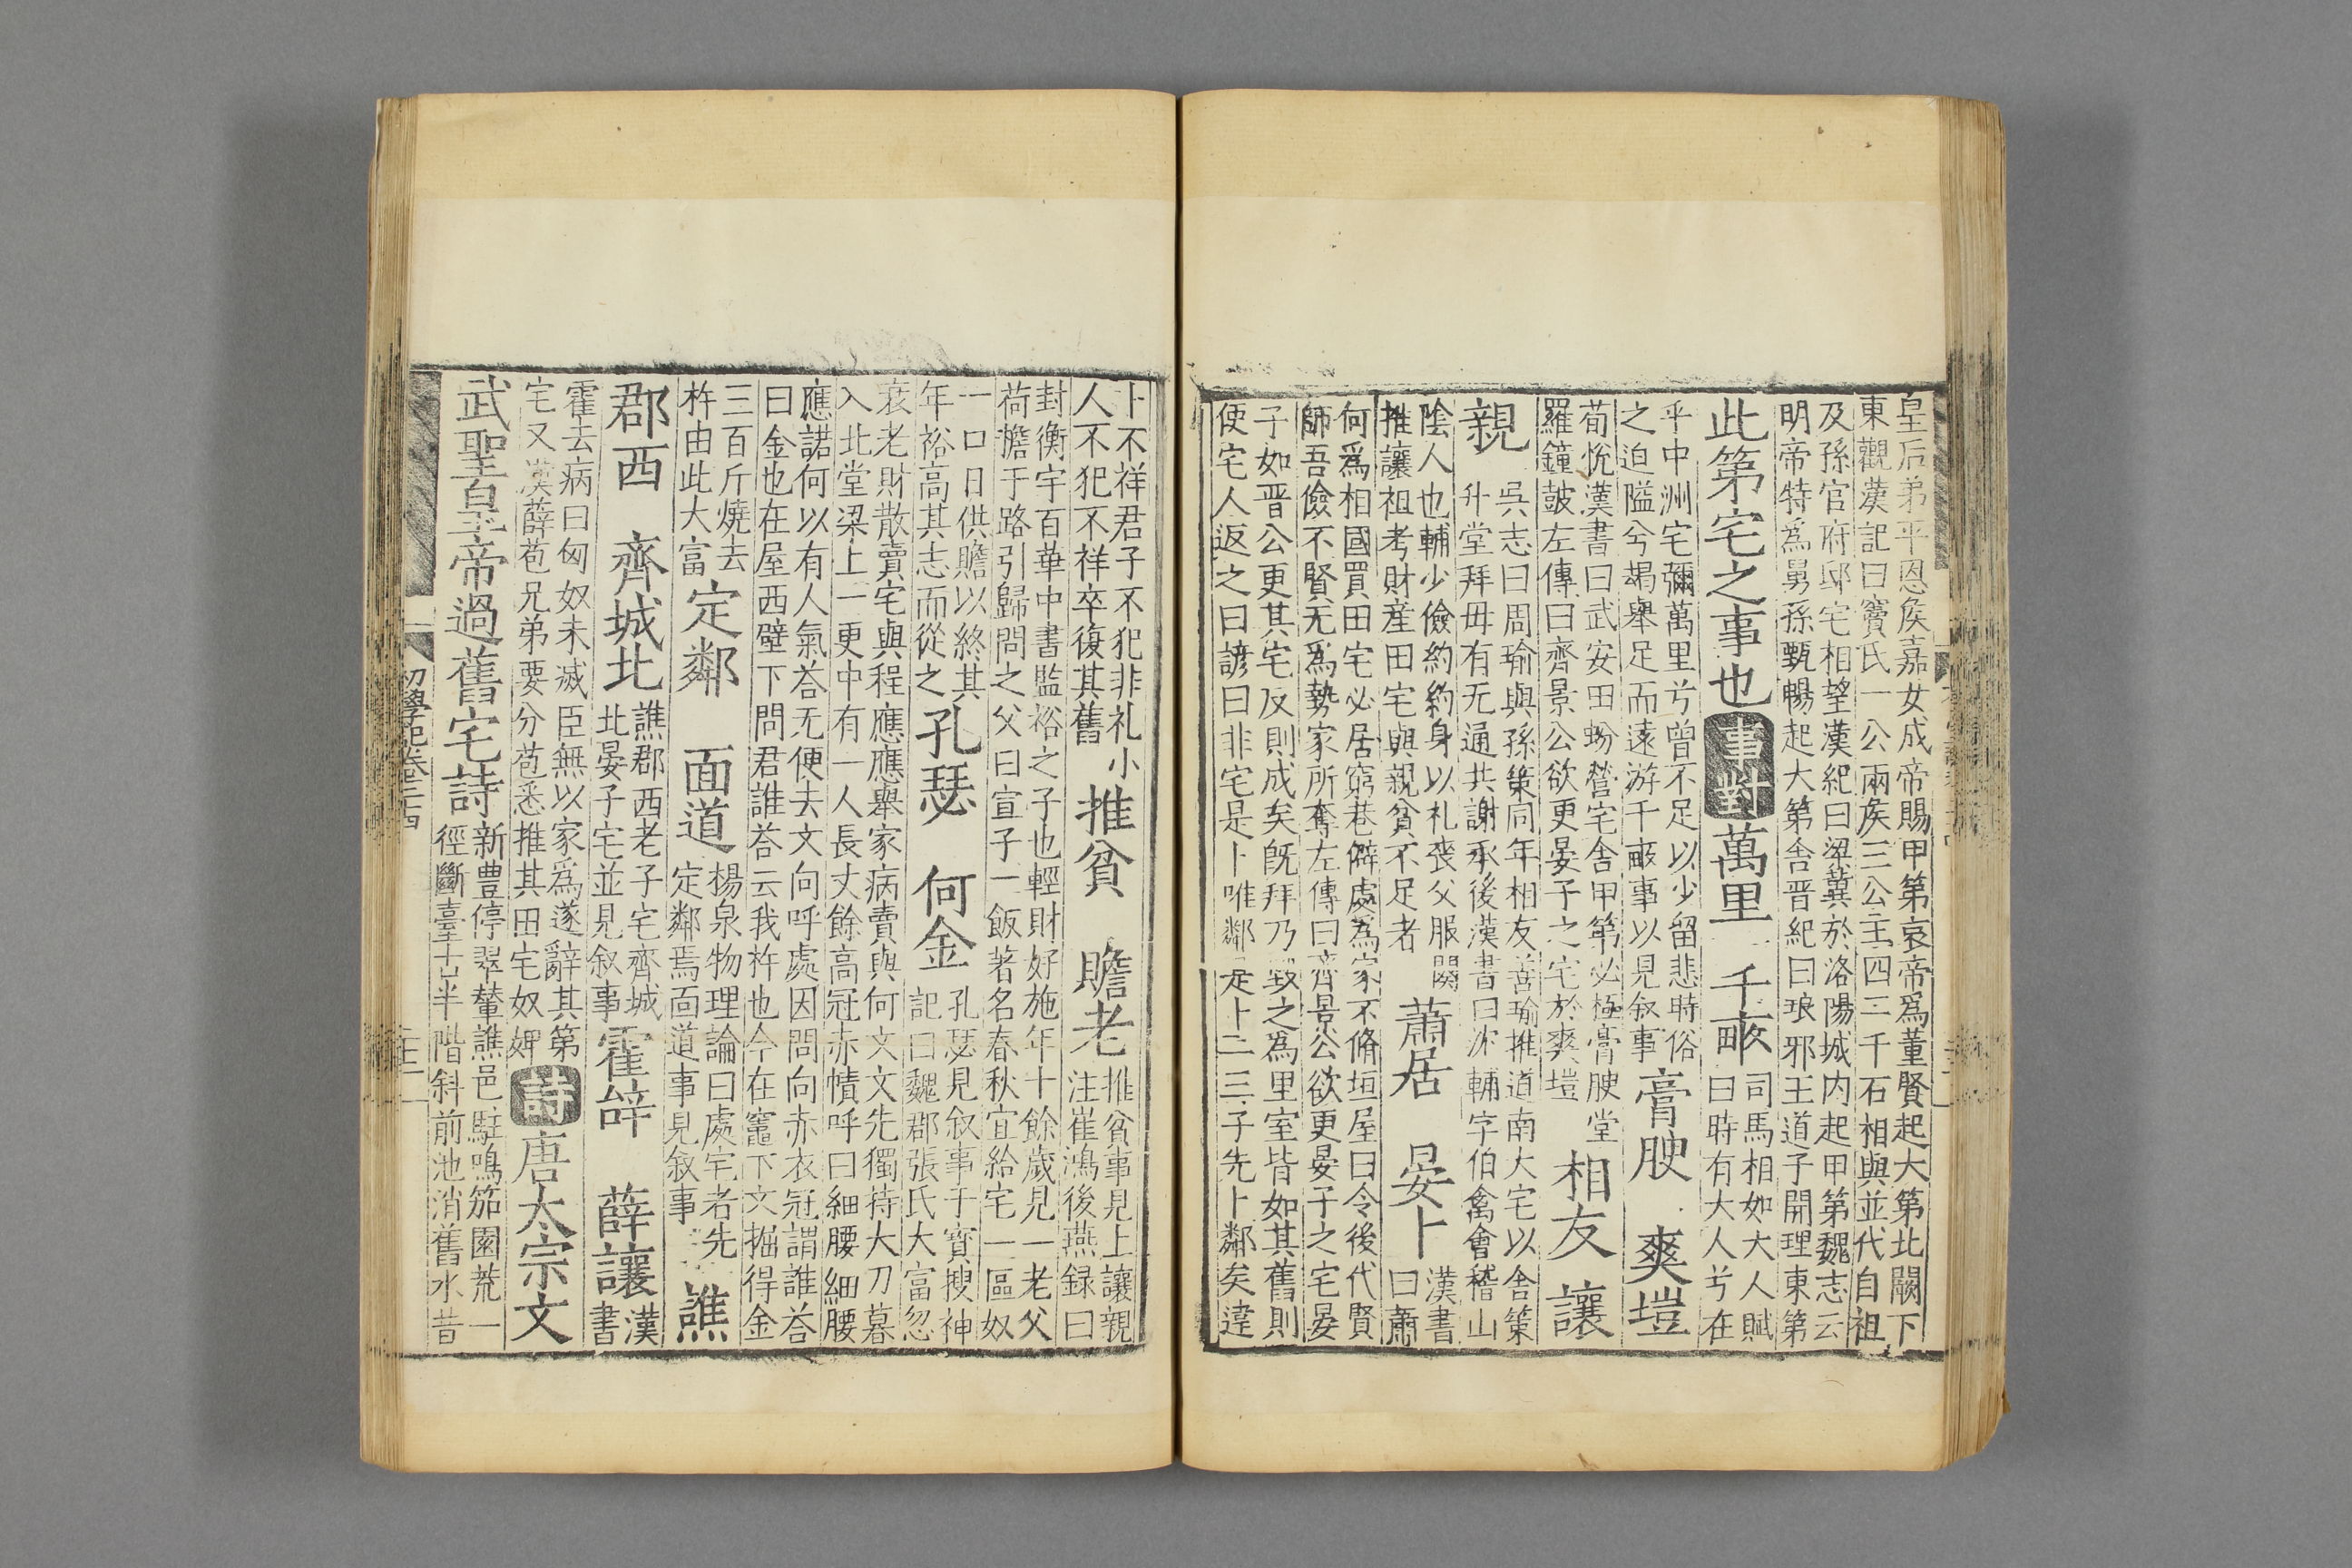 皇后弟平恩侯嘉女成帝賜甲第哀帝爲董賢起大第北闕下
東觀漢記曰竇氏一公兩侯三公主四二千石相與並代自祖
及孫官府邸宅相望漢紀曰梁冀於洛陽城内起甲第魏志云
明帝特爲舅孫甄暢起大第舎晋紀曰琅邪王道子開理東第
此第宅之事也
事對
萬里 千畞
司馬相如大人賦
曰時有大人兮在
乎中洲宅彌萬里兮曾不足以少留悲時俗
之迫隘兮朅舉足而遠游千畞事以見叙事
膏腴 爽塏
荀恱漢書曰武安田蚡營宅舎甲第必極膏腴堂
羅鐘皷左傳曰齊景公欲更晏子之宅於爽塏
相友 讓
親
吳志曰周瑜與孫策同年相友善瑜推道南大宅以舎策
升堂拜母有无通共謝承後漢書曰沈輔字伯禽會稽山
陰人也輔少儉約約身以礼喪父服闋
推讓祖考財産田宅與親貧不足者
蕭居 晏卜
漢書
曰蕭
何爲相國買田宅必居窮巷僻處爲家不脩垣屋曰令後代賢
師吾儉不賢无爲勢家所奪左傳曰齊景公欲更晏子之宅晏
子如晋公更其宅反則成矣旣拜乃毀之爲里室皆如其舊則
使宅人返之曰諺曰非宅是卜唯鄰是卜二三子先卜鄰矣違
卜不祥君子不犯非礼小
人不犯不祥卒復其舊
推貧 贍老
推貧事見上讓親
注崔鴻後燕録曰
封衡字百華中書監裕之子也輕財好施年十餘歲見一老父
荷擔于路引歸問之父曰宣子一飯著名春秋宜給宅一區奴
一口日供贍以終其
年裕高其志而從之
孔瑟 何金
孔瑟見叙事干寳搜神
記曰魏郡張氏大富忽
衰老財散賣宅與程應應舉家病賣與何文文先獨持大刀暮
入北堂梁上一更中有一人長丈餘高冠赤幘呼曰細腰細腰
應諾何以有人氣荅无便去文向呼處因問向赤衣冠謂誰荅
曰金也在屋西壁下問君誰荅云我杵也今在竈下文掘得金
三百斤燒去
杵由此大富
定鄰 面道
楊泉物理論曰處宅者先
定鄰焉面道事見叙事
譙
郡西 齊城北
譙郡西老子宅齊城
北晏子宅並見叙事
霍辞 薛讓
漢
書
霍去病曰匈奴未滅臣無以家爲遂辭其第
宅又漢薛苞兄弟要分苞悉推其田宅奴婢
詩
唐太宗文
武聖皇帝過舊宅詩
新豊停翠輦譙邑駐鳴笳園荒一
徑斷臺古半階斜前池消舊水昔
初學記卷二十四